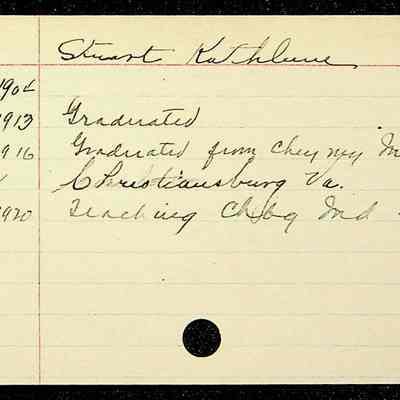 Stuart Kathleene
1904
1913 Graduated
1916 Graduated from Cheyney In
Christiansburg Va.
1920 Teaching Chbg Ind